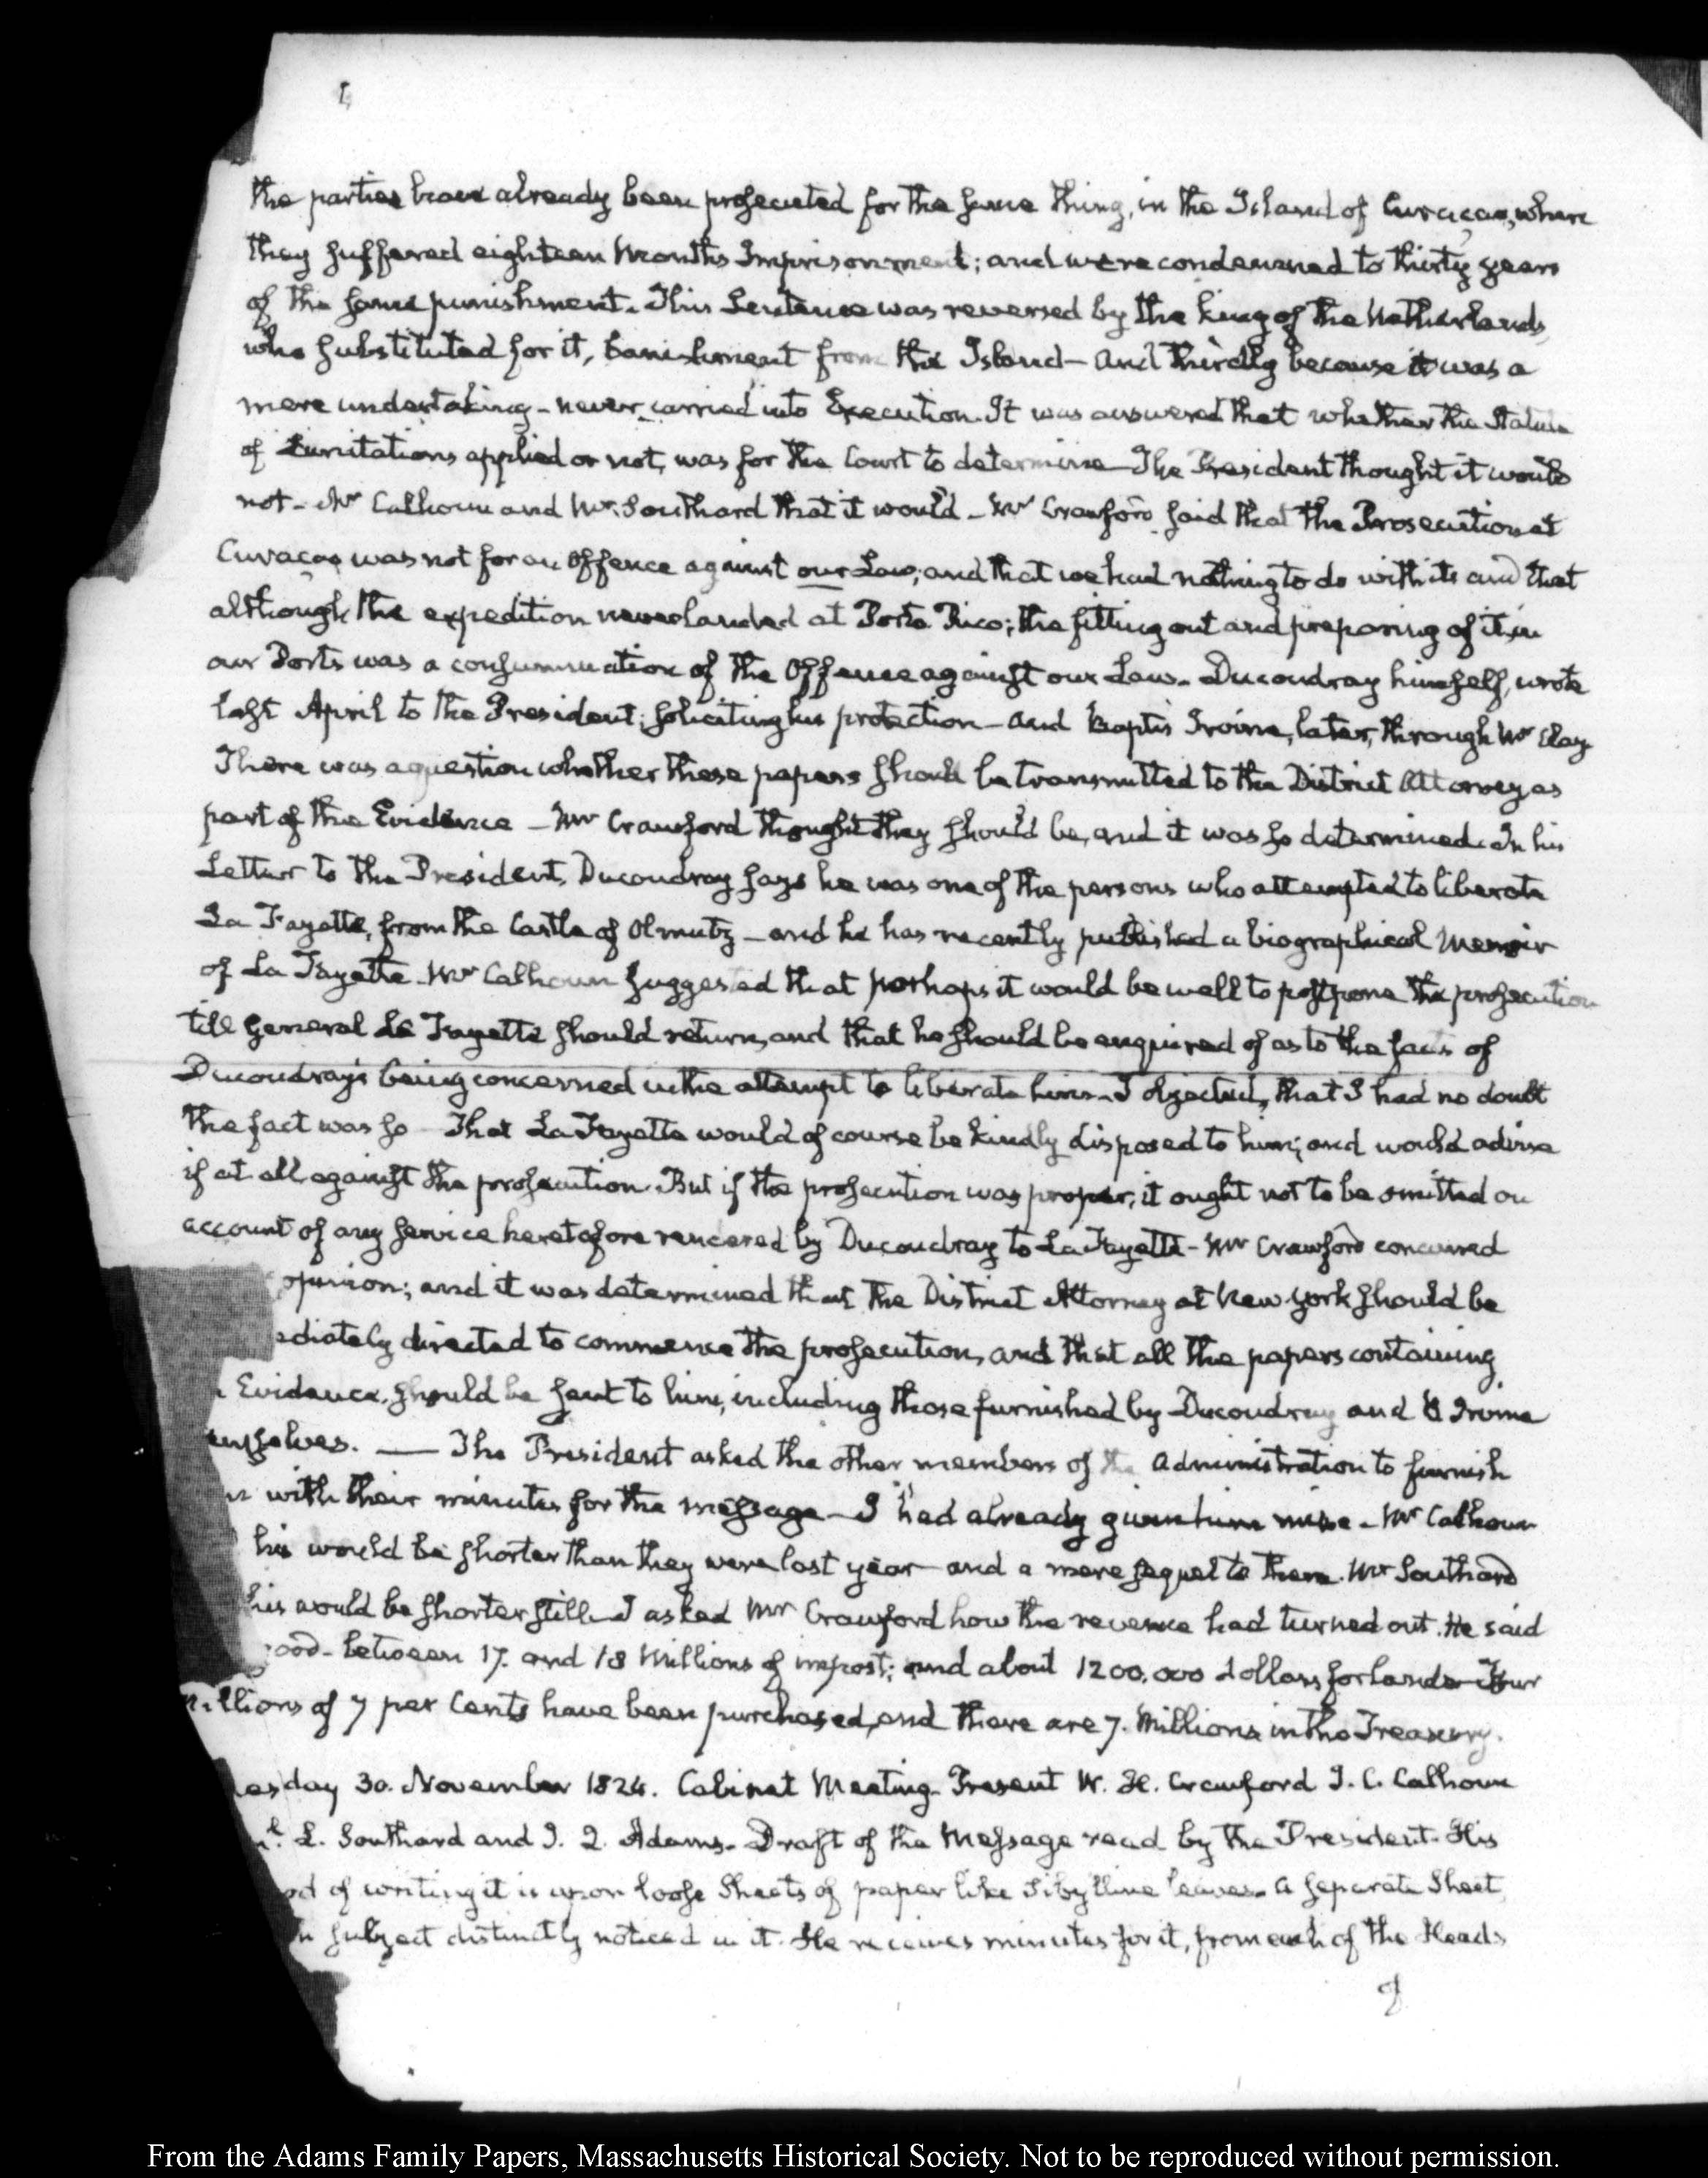 the parties have already been prosecuted for the same thing, in the Island of Curaçao, where
they suffered eighteen Months Imprisonment; and were condemned to thirty years
of the same punishment. This Sentence was reversed by the king of the Netherlands,
who substituted for it, banishment from the Island — and thirdly because it was a
mere undertaking — never carried into Execution. It was answered that whether the Statute
of Limitations applied or not, was for the Court to determine — The President thought it would
not — Mr Calhoun and Mr Southard that it would — Mr Crawford said that the Prosecution at
Curaçao was not for an Offence against our Law; and that we had nothing to do with it; and that
although the expedition never landed at Porto Rico; the fitting out and preparing of it, in
our Ports was a consummation of the Offence against our Law. Ducoudray himself, wrote
last April to the President; soliciting his protection — and Baptis Irvine, later, through Mr Clay
There was a question whether these papers should be transmitted to the District Attorney as
part of the Evidence — Mr Crawford thought they should be, and it was so determined. In his
Letter to the President, Ducoudray says he was one of the persons who attempted to liberate
La Fayette, from the Castle of Olmutz — and he has recently published a biographical Memoir
of La Fayette. Mr Calhoun suggested that perhaps it would be well to postpone the prosecution
till General La Fayette should return, and that he should be enquired of as to the fact of
Ducoudray's being concerned in the attempt to liberate him. I objected, that I had no doubt
the fact was so — That La Fayette would of course be kindly disposed to him; and would advise
if at all against the prosecution. But if the prosecution was proper, it ought not to be omitted on
account of any service heretofore rendered by Ducoudray to La Fayette — Mr Crawford concurred
opinion; and it was determined that the District Attorney at New York should be
ediately directed to commence the prosecution, and that all the papers containing
Evidence, should be sent to him, including those furnished by Ducoudray and B Irvine
emselves. — The President asked the other members of the Administration to furnish
with their minutes for the message — I had already given him mine — Mr Calhoun
his would be shorter than they were last year — and a mere sequel to them. Mr Southard
his would be shorter still — I asked Mr Crawford how the revenue had turned out. He said
good — between 17. and 18 Millions of impost; and about 1200.000 dollars for lands — Four
millions of 7 per Cents have been purchased, and there are 7. Millions in the Treasury.
esday 30. November 1824. Cabinet Meeting. Present W. H. Crawford J. C. Calhoun
l. L. Southard and J. Q. Adams. Draft of the Message read by the President. His
od of writing it is upon loose Sheets of paper like Sibylline leaves — a separate Sheet
h subject distinctly noticed in it. He receives minutes for it, from each of the Heads
of
From the Adams Family Papers, Massachusetts Historical Society. Not to be reproduced without permission.